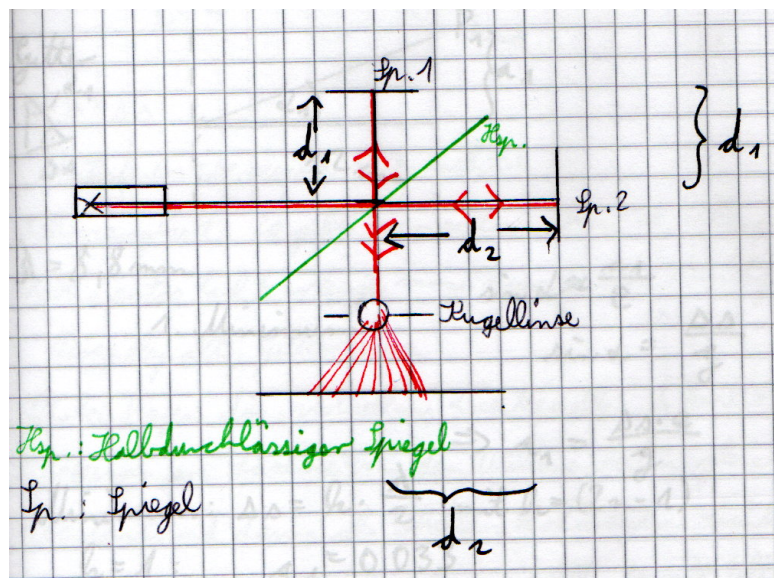 Sp. 1
d1
Hsp.
d1
Sp. 2
d2
Kugellinse
Hsp.: Halbdurchlässiger Spiegel
Sp.: Spiegel
d2